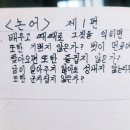 <논어> 제1편
1. 배우고 때때로 그것을 익히면
또한 기쁘지 않은가? 벗이 먼곳에서
찾아오면 또한 즐겁지 않은가?
남이 알아주지 않아도 성내지 않는다면
또한 군자답지 않은가?